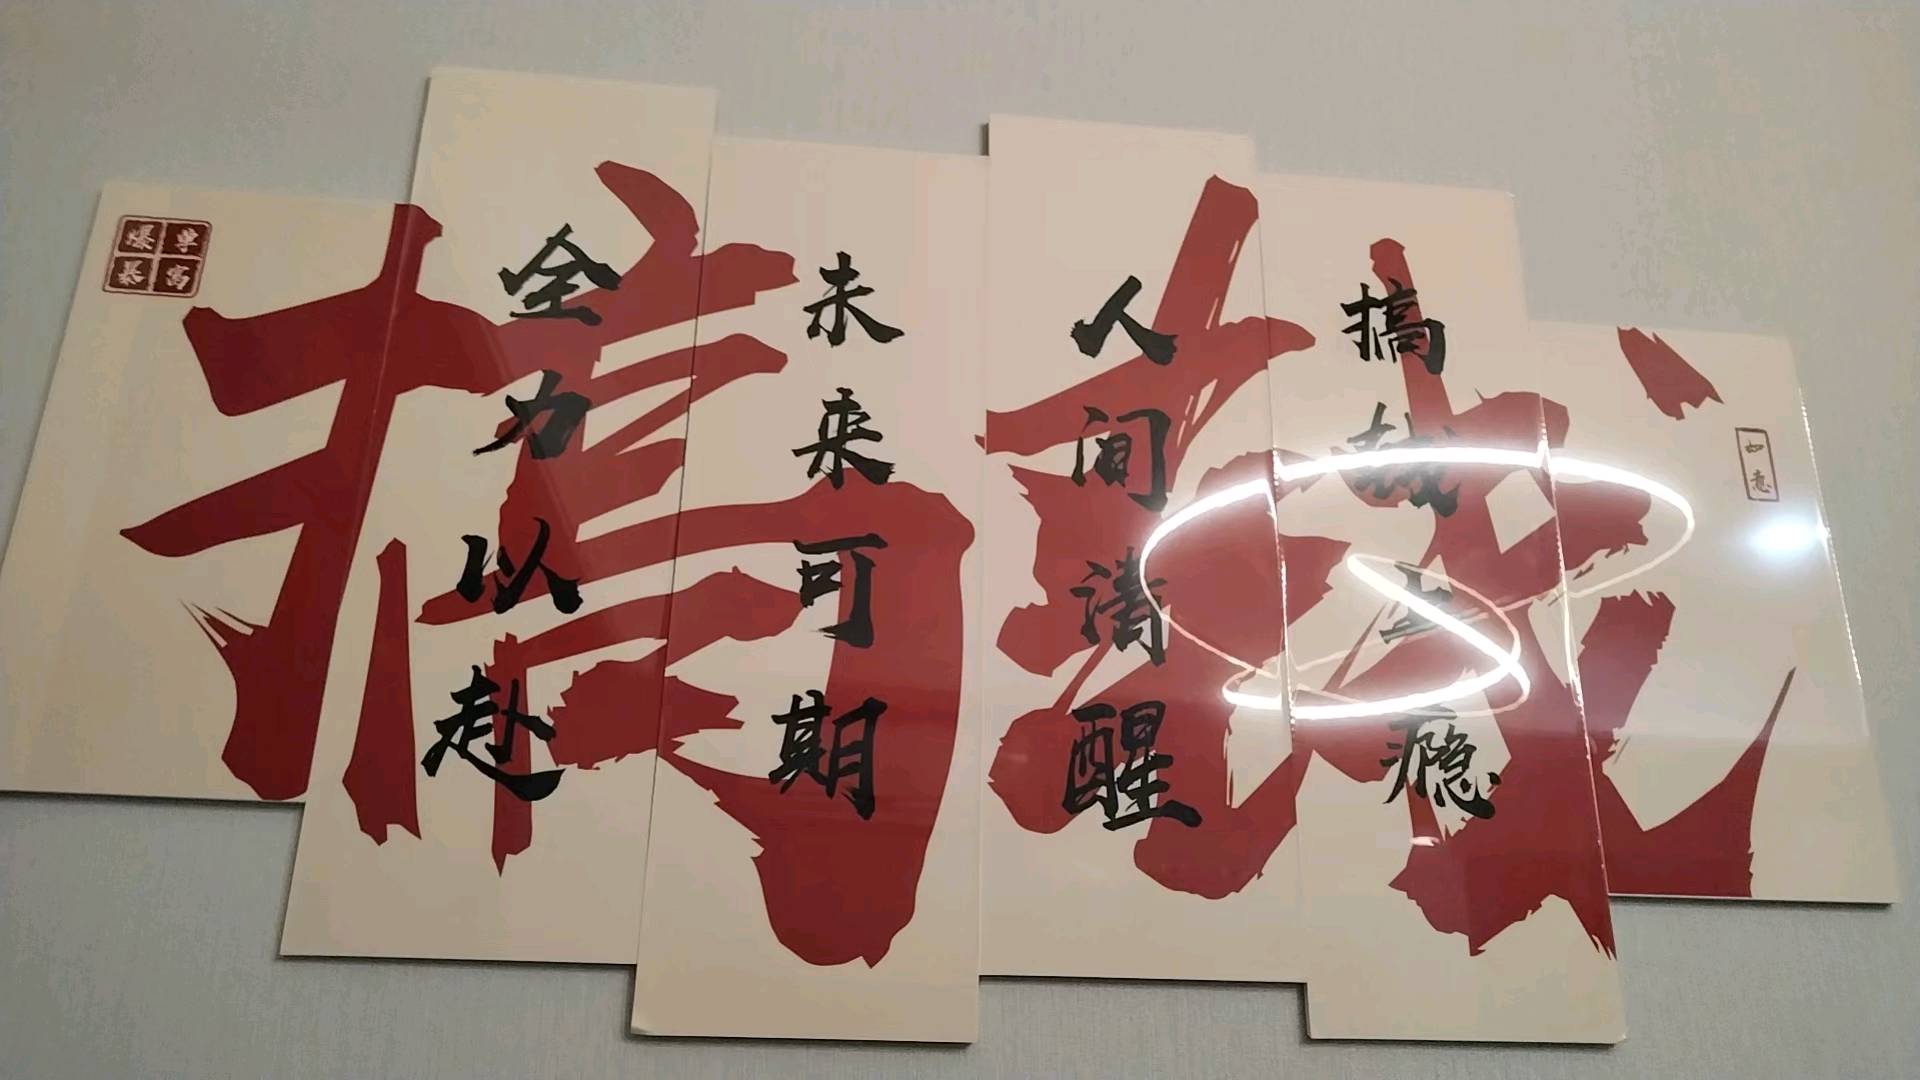 搞钱
搞钱上瘾
人间清醒
未来可期
全力以赴
如意
爆单
暴富